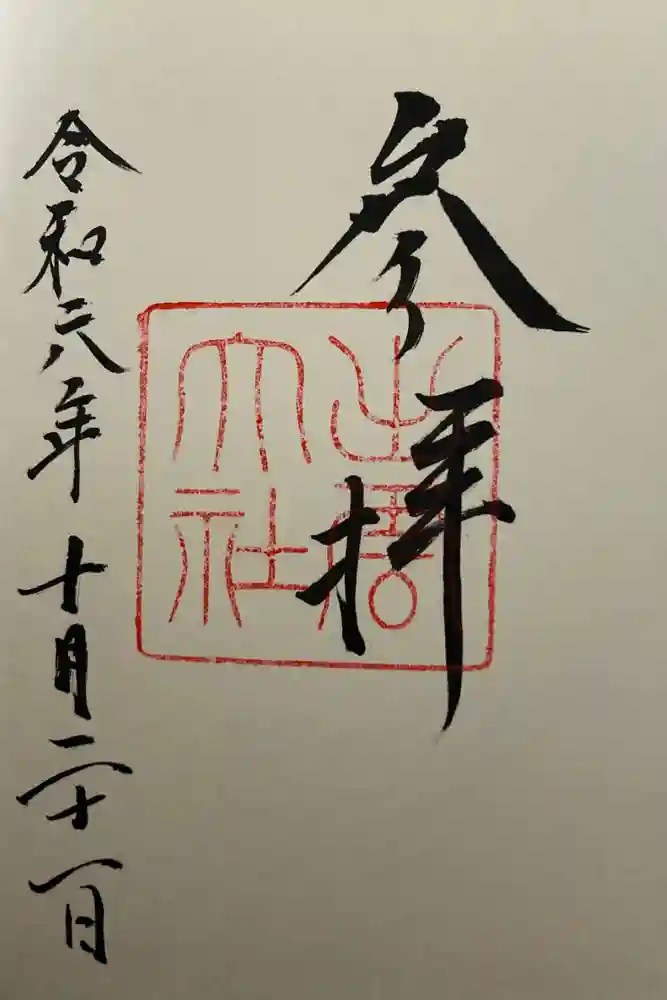 参拝
出雲
大社
令和六年十月二十一日